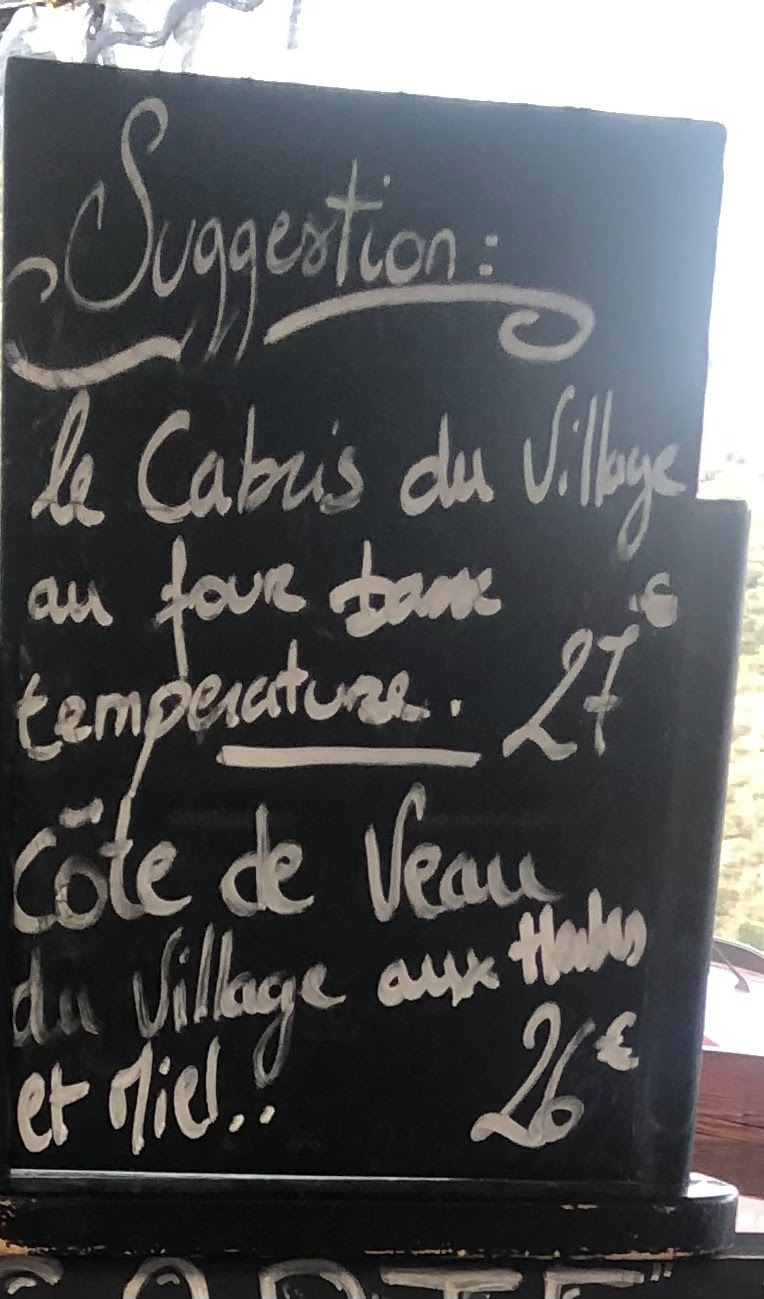 Suggestion :
le Cabris du Village
au four basse
temperature. 27€
Côte de Veau
du Village aux Herbes
et Miel..
26€
CARTE